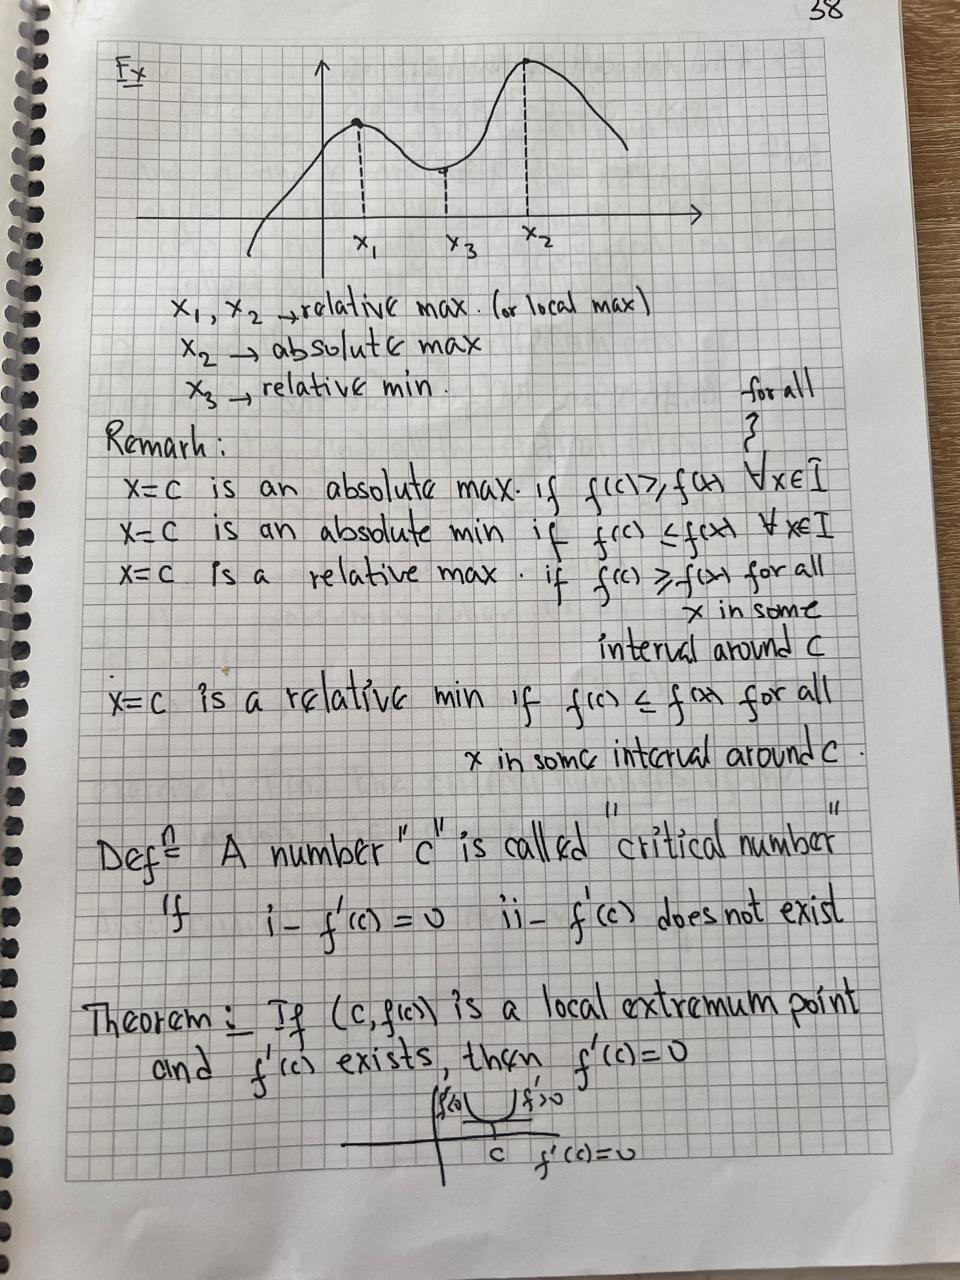 38
Ex
x₁ x₃ x₂
x₁, x₂ → relative max. (or local max)
x₂ → absolute max
x₃ → relative min.
for all
Remark:
x=c is an absolute max. if f(c) ≥ f(x) ∀x∈I
x=c is an absolute min if f(c) ≤ f(x) ∀x∈I
x=c is a relative max. if f(c) ≥ f(x) for all
x in some
interval around c
x=c is a relative min if f(c) ≤ f(x) for all
x in some interval around c.
Defⁿ A number "c" is called "critical number"
if i- f'(c) = 0 ii- f'(c) does not exist
Theorem: If (c, f(c)) is a local extremum point
and f'(c) exists, then f'(c) = 0
f'<0 f'>0
c f'(c)=0